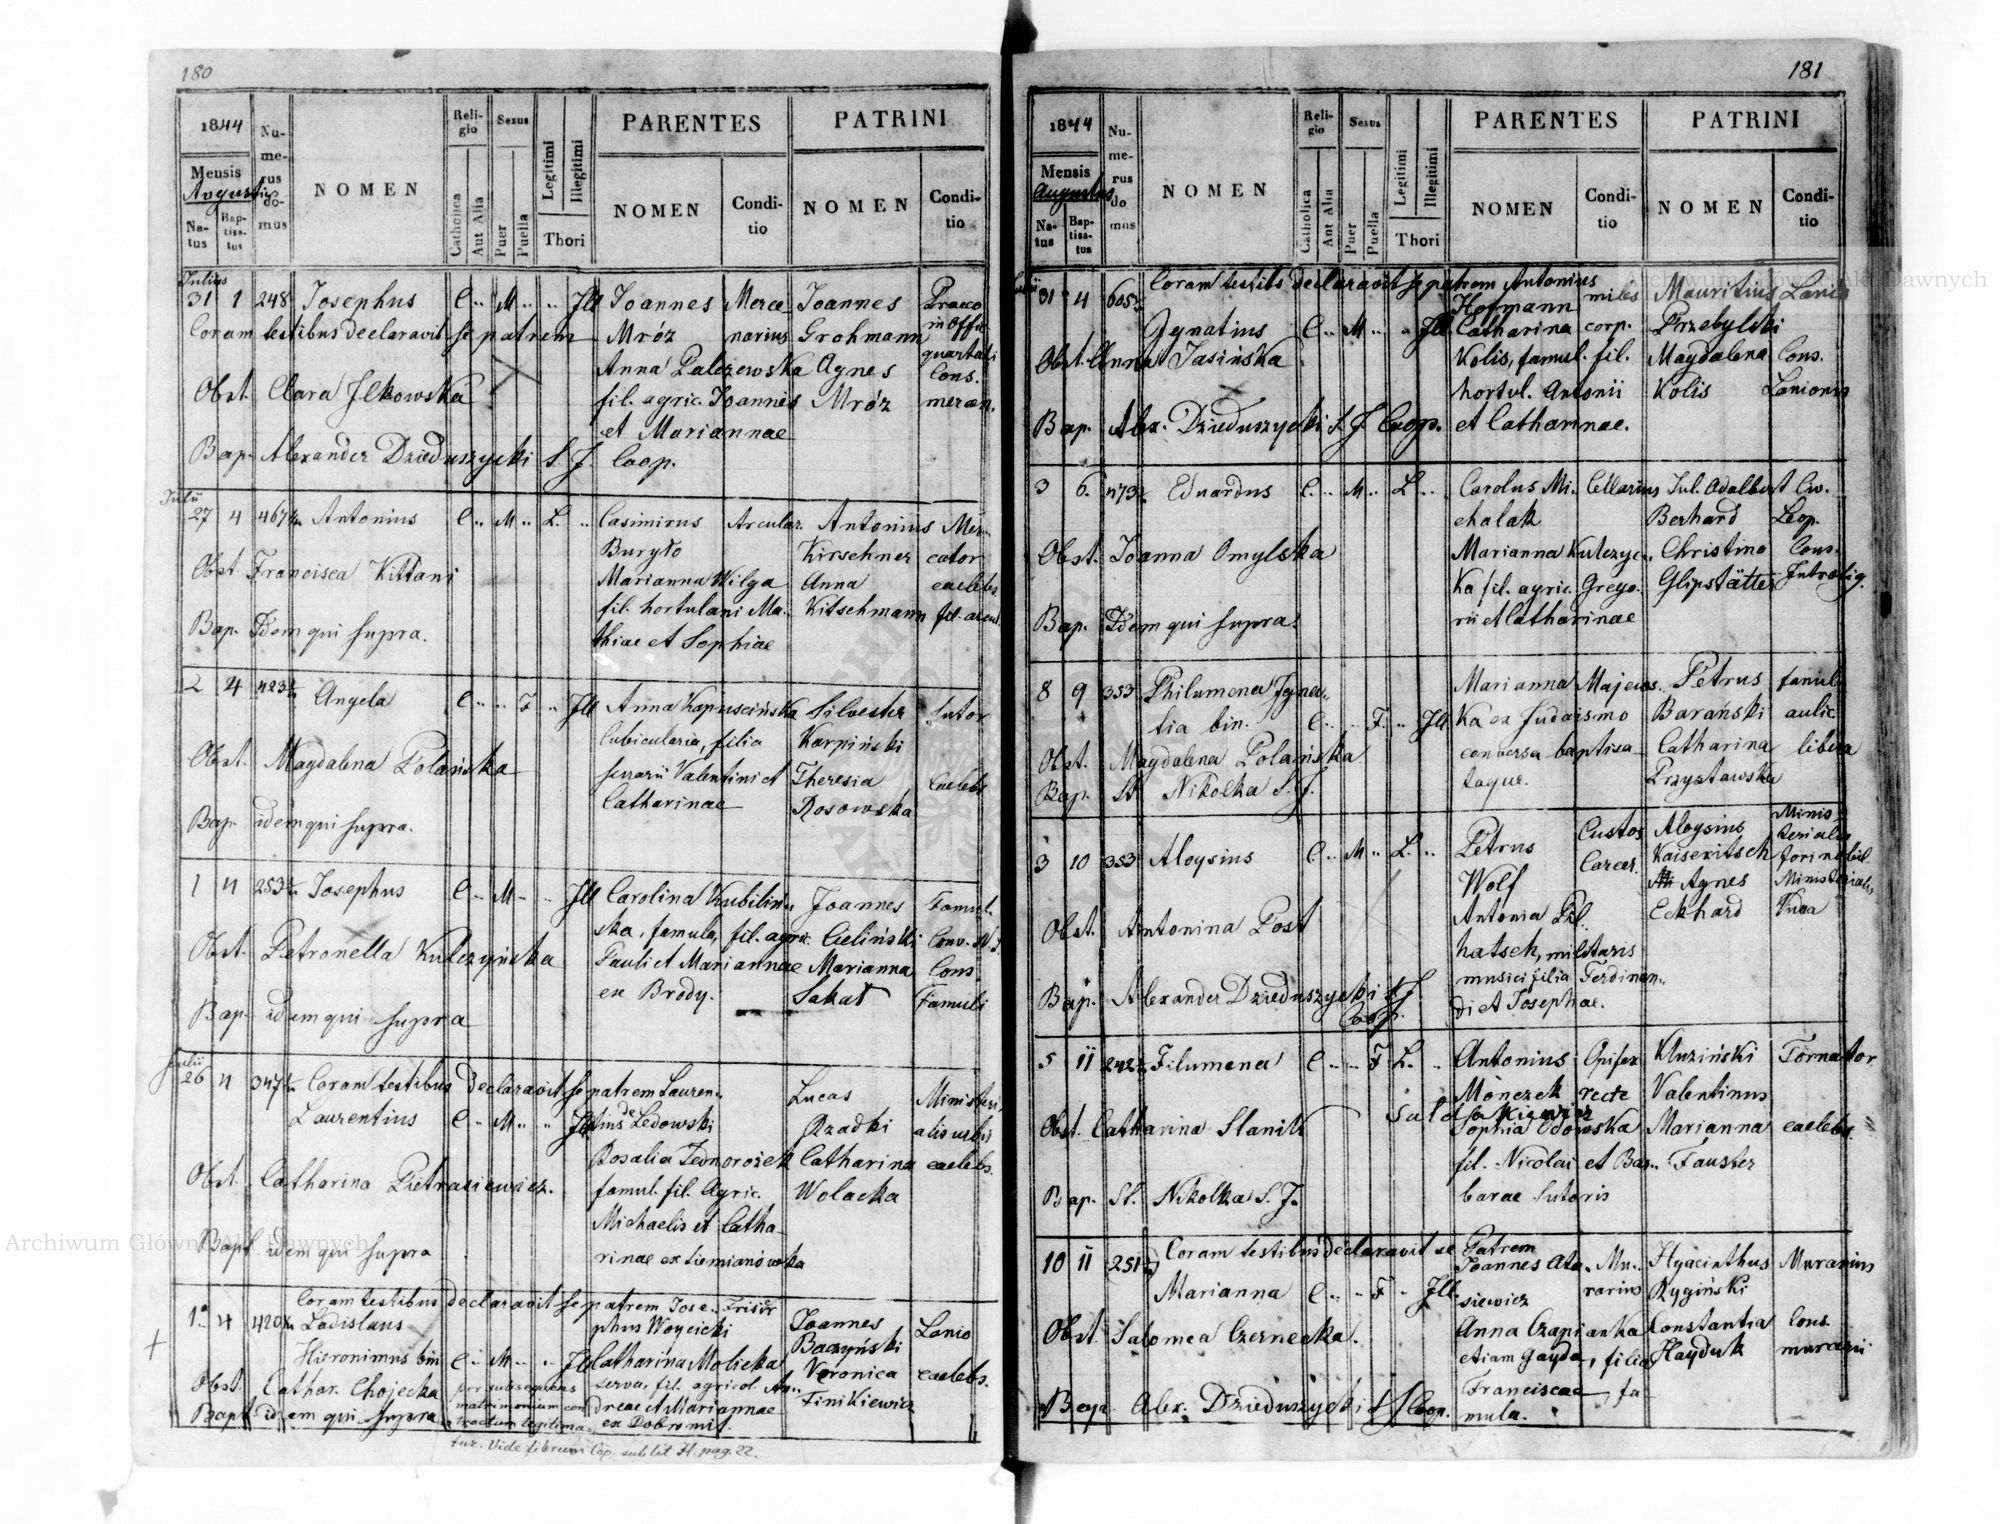 180
1844
Numerus domus
NOMEN
Religio
Sexus
Legitimi
Illegitimi
PARENTES
PATRINI
Mensis
Augustus
Natus
Baptisatus
Catholica
Aut Alia
Puer
Puella
Thori
NOMEN
Conditio
NOMEN
Conditio
Julius
31 1 248 Josephus C .. M .. .. Ill Joannes Merce Joannes Praeco
Coram testibus declaravit se patrem Mróz narius Grohmann in Offic.
quartali
Anna Palczewska Agnes Cons.
Obst. Clara Ilkowska fil. agric. Joannis Mróz mercen.
et Mariannae
Bap. Alexander Dzieduszycki S. J. Coop.
Julii
27 4 467 Antonius C .. M .. L .. Casimirus Arcular. Antonius Mer-
Buryło Kirschner cator
Obst Francisca Kittani Marianna Wilga Anna caelebs
fil. hortulani Ma- Kitschmann fil.
Bap. Idem qui supra. thiae et Sophiae
2 4 423 Angela C .. .. F .. Ill Anna Kapuscińska Silvester Sutor
Cubicularia, filia Karpiński
Obst. Magdalena Polańska serrarii Valentini et Theresia Caelebs
Catharinae Rosowska
Bap. idem qui supra.
1 4 253 Josephus C .. M .. .. Ill Carolina Kubilin- Joannes Famul.
ska, famula, fil. agric. Cieliński Conv.
Obst. Petronella Kulczyńska Pauli et Mariannae Marianna Cons
ex Brody. Sakat Famuli
Bap. idem qui supra
Julii
26 4 347 Coram testibus declaravit se patrem Lauren- Lucas Ministeri
Laurentius C .. M .. .. Ill tius de Ledowski Rzadki alis urbis
Rosalia Jednorożek Catharina caelebs.
Obst. Catharina Pietrasiewicz. famul. fil. Agric. Wolacka
Michaelis et Catha-
Bapt. idem qui supra rinae ex Siemianówka
Coram testibus declaravit se patrem Jose- Frisir
1. 4 420 Ladislaus phus Woycicki Joannes Lanio
Hieronimus bin C .. M .. .. Ill Catharina Molicka Baczyński
Obst. Cathar. Chojecka per subsequens serva, fil. agricol. An- Veronica caelebs.
matrimonium con dreae et Mariannae Finikiewicz
Bapt. idem qui supra tractum legitima- ex Dobromil.
tur. Vide librum Cop. sub lit H. pag. 22.
181
1844
Numerus domus
NOMEN
Religio
Sexus
Legitimi
Illegitimi
PARENTES
PATRINI
Mensis
Augustus
Natus
Baptisatus
Catholica
Aut Alia
Puer
Puella
Thori
NOMEN
Conditio
NOMEN
Conditio
Coram testibs declaravit se patrem Antonius
31 4 605 Hofmann miles Mauritius Lanio
Ignatius C .. M .. .. Ill Catharina corp. Przebylski
Obst. Anna Jasińska Kolis, famul. fil. Magdalena Cons.
hortul. Antonii Kolis Lanionis
Bap. Alex. Dzieduszycki S. J. Coop. et Catharinae.
3 6. 473 Eduardus C. .. M .. L .. Carolus Mi- Cellarius Jul. Adalbert Civ.
chalak Berhard Leop.
Obst. Joanna Omylska Marianna Kulczyc- Christina Cons.
ka fil. agric. Grego- Glipstätter Introlig.
Bap. Idem qui supra. rii et Catharinae
8 9 353 Philumena Igna- Marianna Majews- Petrus famul.
tia bin. C .. .. F .. Ill ka ex Judaismo Barański aulic
Obst. Magdalena Polańska conversa baptisa- Catharina libera
Bap. St Nikolka S. J. taque. Przystawska
3 10 353 Aloysius C .. M .. L .. Petrus Custos Aloysius Ministerialis
Wolf Carcer. Kaiseritsch fori nobil.
Agnes Ministerialis
Obst. Antonina Post Antonia Pil- Eckhard Vidua
hatsch, militaris
musici filia Ferdinan-
Bap. Alexander Dzieduszycki S. J. di et Josephae.
Coop.
5 11 242 Filumena C .. .. F L .. Antonius Opifex Kluziński Tornator
Mònczek recte Valentinus
Salosakiewicz
Obst. Catharina Stanik Sophia Odowska Marianna caelebs.
fil. Nicolai et Bar- Fauster
Bap. St. Nikolka S. J. barae Sutoris
10 11 251 Coram testibus declaravit se Patrem
Joannes Ata- Mu- Hyacinthus Murarius
Marianna C .. .. F .. Ill. siewicz rarius Rygiński
Obst. Salomea Czernecka. Anna Czapianka Constantia Cons.
etiam Gayda, filia Hayduk murarii
Bap. Alex. Dzieduszycki S J Coop. Franciscae, fa
mula.
Archiwum Główne Akt Dawnych
Archiwum Główne Akt Dawnych